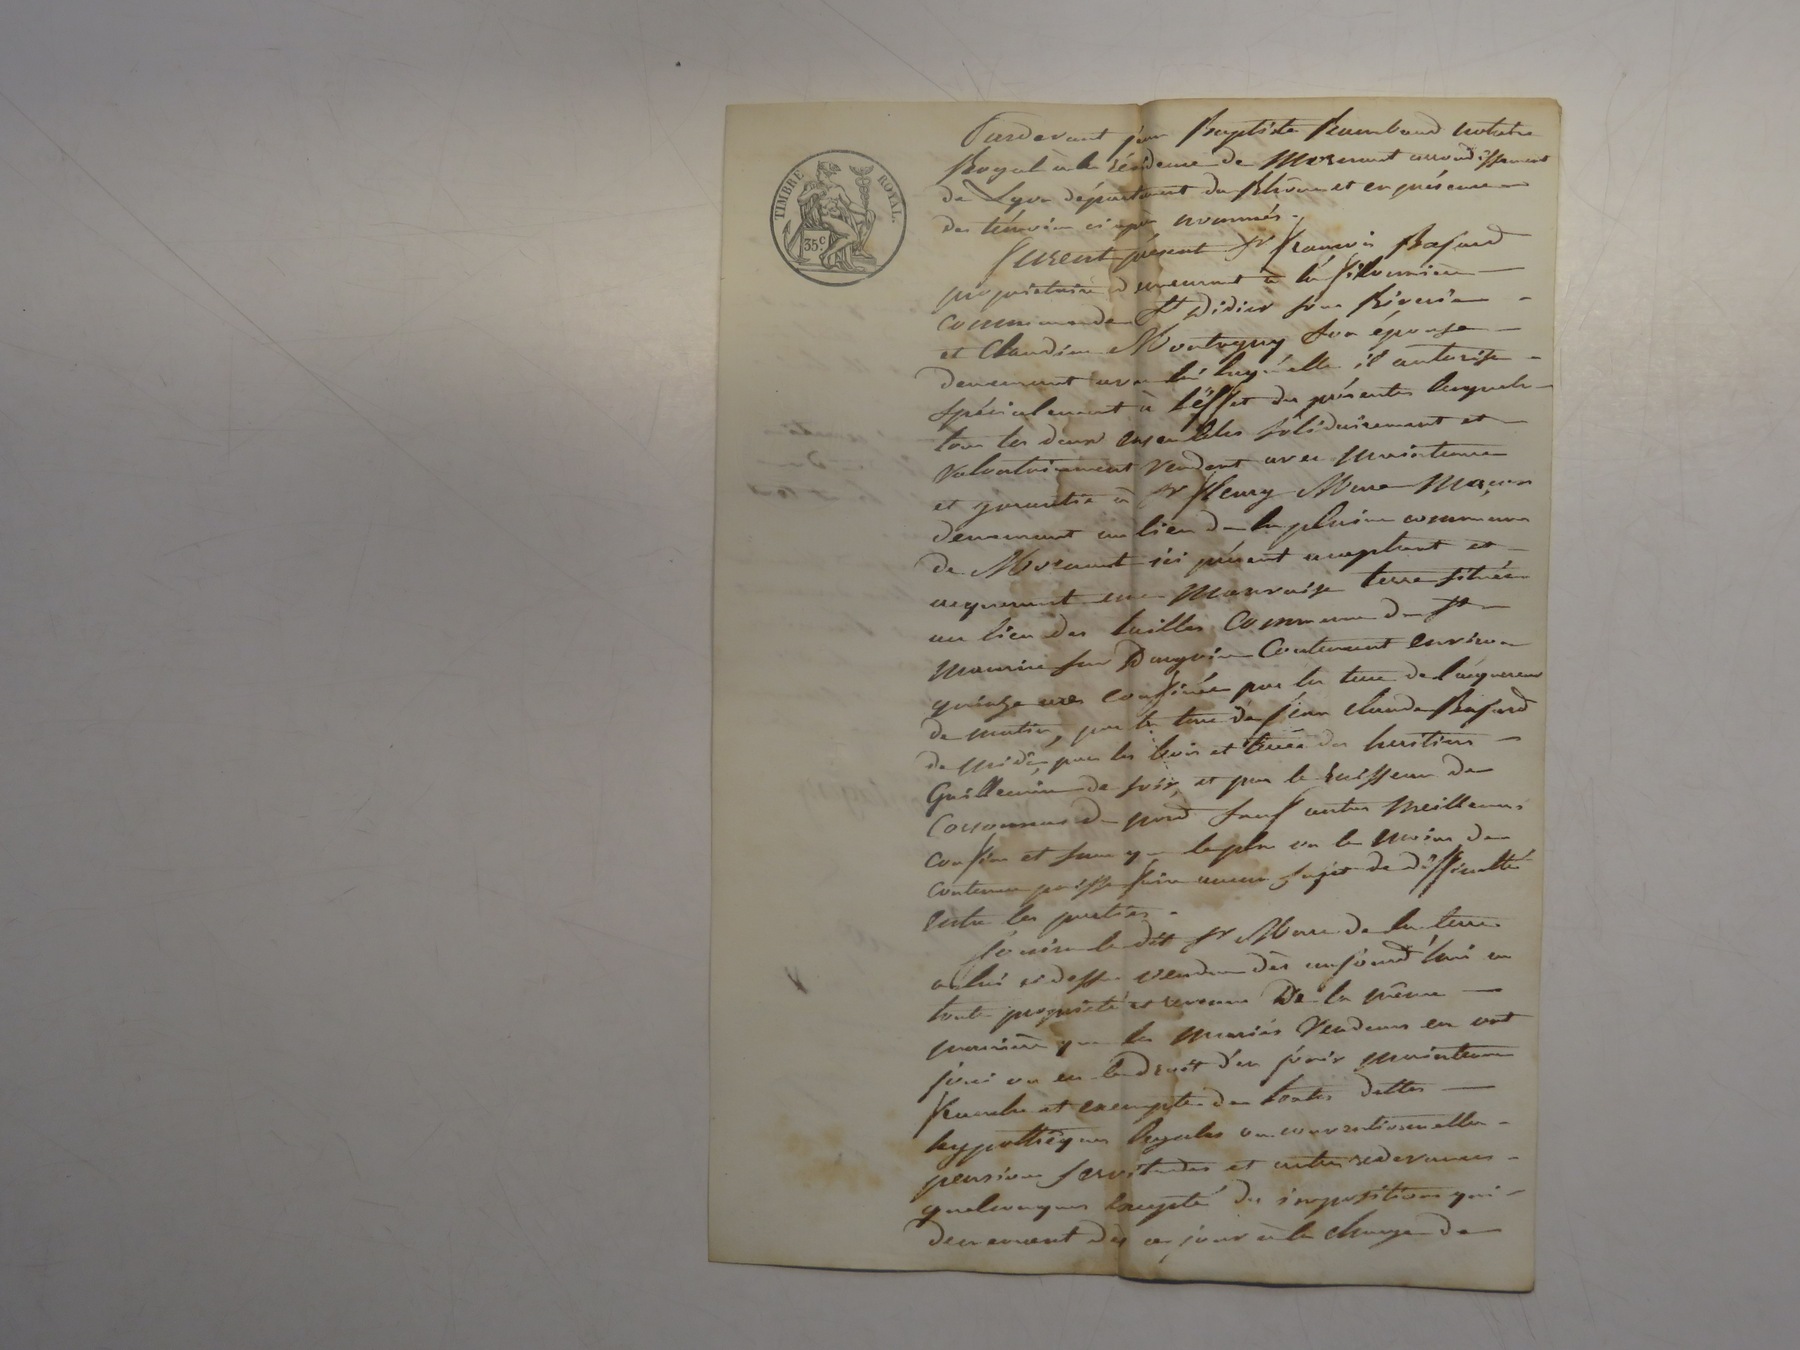 TIMBRE ROYAL.
35 c.
Pardevant jean Baptiste Rambaud notaire
Royal à la résidence de Mornant arrondissement
de Lyon département du Rhône et en présence
des témoins ci après nommés.
furent présent Sr françois Basard
propriétaire demeurant à la
commune de St Didier sous Riverie
et Claudine Montagny son épouse
demeurant avec lui laquelle il autorise
spécialement à l'effet des présentes lesquels
tous les deux ensembles solidairement et
volontairement vendent avec maintenue
et garantie à Sr fleury Maçon
demeurant au lieu de la plaine commune
de Mornant ici présent acceptant et
acquerant une mauvaise terre située
au lieu des tailles commune de St
Maurice sur Dargoire contenant environ
quinze ares confinée par la terre de l'acquereur
de matin, par la terre de jean claude Basard
de midi, par les bois et terre des heritiers
Guillermin de soir, et par le ruisseau de
de nord sauf autres meilleurs
confins et sans que le plus ou le moins de
contenu puisse faire aucun sujet de difficulté
entre les parties.
jouira le dit Sr de la terre
à lui ci dessus vendue dès aujourd'hui en
toute propriété et revenu De la même
manière que les mariés vendeurs en ont
joui ou eu le droit d'en jouir maintenue
franche et exempte de toutes dettes
hypothèques légales ou conventionnelles
pension servitudes et autres redevances
quelconques excepté des impositions qui
demeurent dès ce jour à la charge de